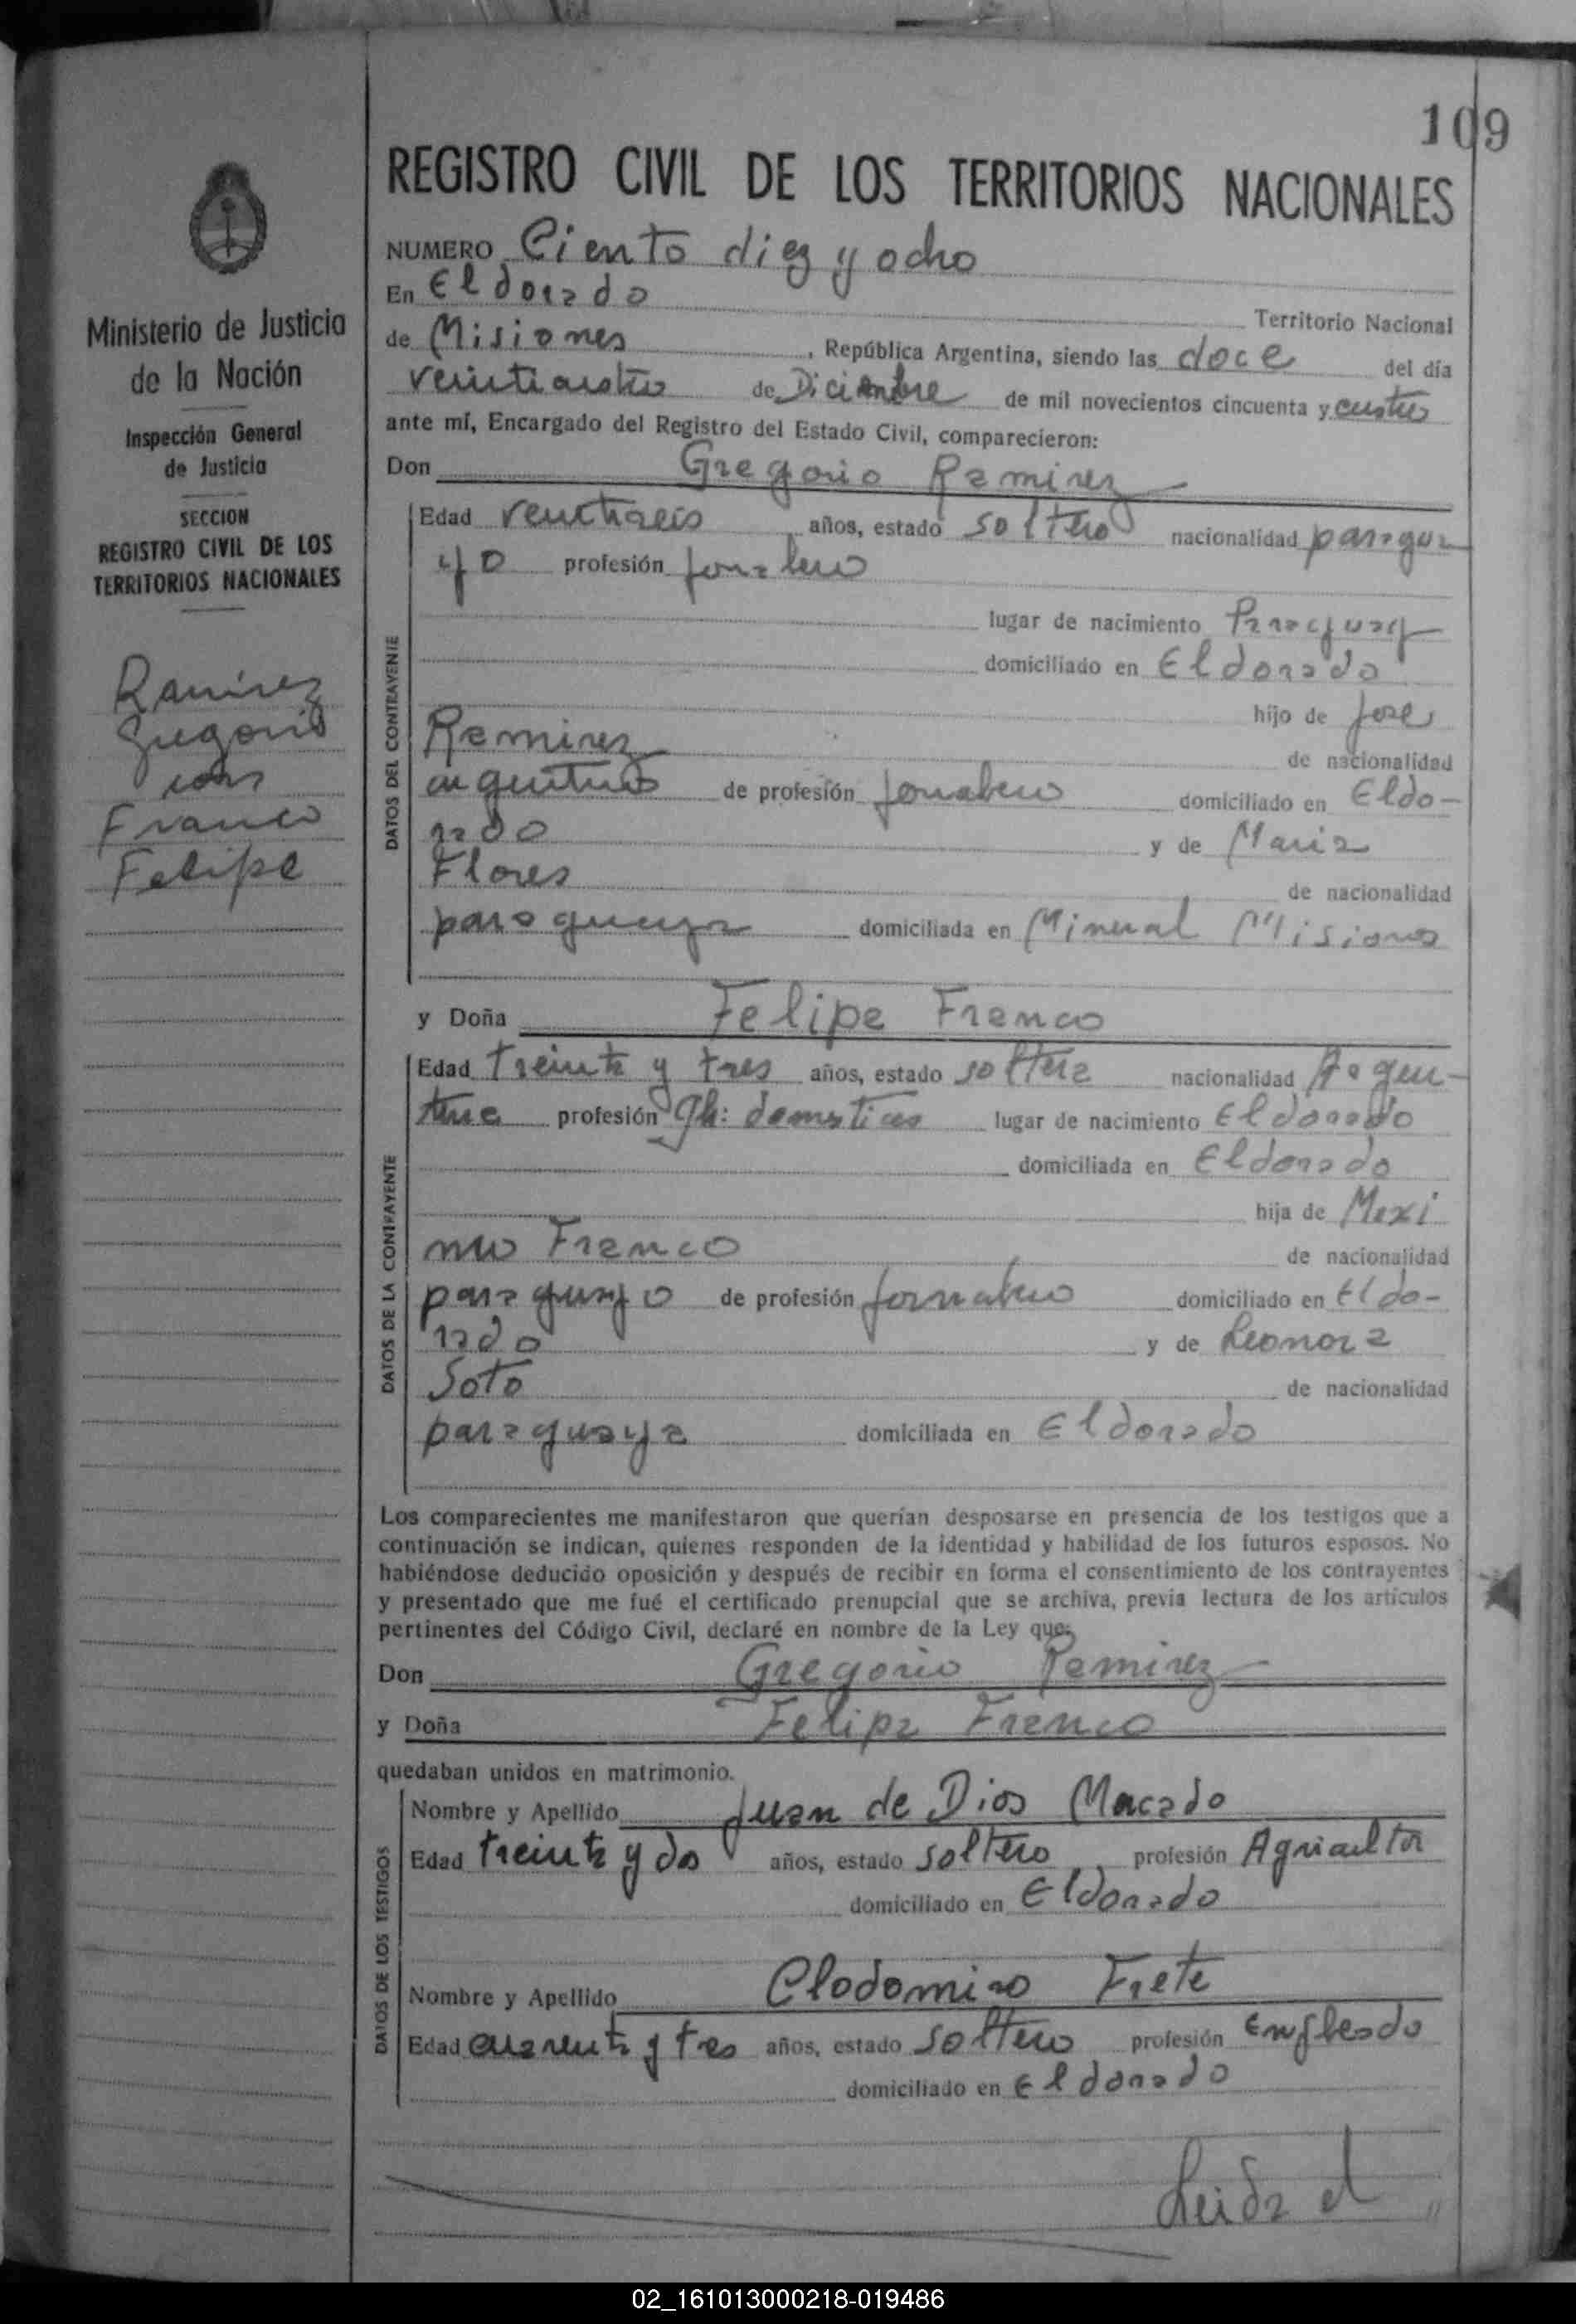 109
REGISTRO CIVIL DE LOS TERRITORIOS NACIONALES
NUMERO Ciento diez y ocho
En Eldorado
Territorio Nacional
de Misiones, República Argentina, siendo las doce del día
veinticuatro de Diciembre de mil novecientos cincuenta y cuatro
ante mí, Encargado del Registro del Estado Civil, comparecieron:
Don Gregorio Ramirez
Edad veintiseis años, estado soltero nacionalidad paragua
yo profesión jornalero
lugar de nacimiento Paraguay
domiciliado en Eldorado
hijo de José
Ramirez de nacionalidad
argentino de profesión jornalero domiciliado en Eldo-
rado y de Maria
Flores de nacionalidad
paraguaya domiciliada en Mineral Misiones
DATOS DEL CONTRAYENTE
y Doña Felipa Franco
Edad treinta y tres años, estado soltera nacionalidad Argen-
tina profesión Qh: domesticos lugar de nacimiento Eldorado
domiciliada en Eldorado
hija de Maxi
mo Franco de nacionalidad
paraguayo de profesión jornalero domiciliado en Eldo-
rado y de Leonora
Soto de nacionalidad
paraguaya domiciliada en Eldorado
DATOS DE LA CONTRAYENTE
Los comparecientes me manifestaron que querían desposarse en presencia de los testigos que a
continuación se indican, quienes responden de la identidad y habilidad de los futuros esposos. No
habiéndose deducido oposición y después de recibir en forma el consentimiento de los contrayentes
y presentado que me fué el certificado prenupcial que se archiva, previa lectura de los artículos
pertinentes del Código Civil, declaré en nombre de la Ley que:
Don Gregorio Ramirez
y Doña Felipa Franco
quedaban unidos en matrimonio.
Nombre y Apellido Juan de Dios Macado
Edad treinta y dos años, estado soltero profesión Agricultor
domiciliado en Eldorado
Nombre y Apellido Clodomiro Frete
Edad cuarenta y tres años, estado soltero profesión Empleado
domiciliado en Eldorado
DATOS DE LOS TESTIGOS
Leida el
Ministerio de Justicia
de la Nación
Inspección General
de Justicia
SECCION
REGISTRO CIVIL DE LOS
TERRITORIOS NACIONALES
Ramirez
Gregorio
con
Franco
Felipa
02_161013000218-019486